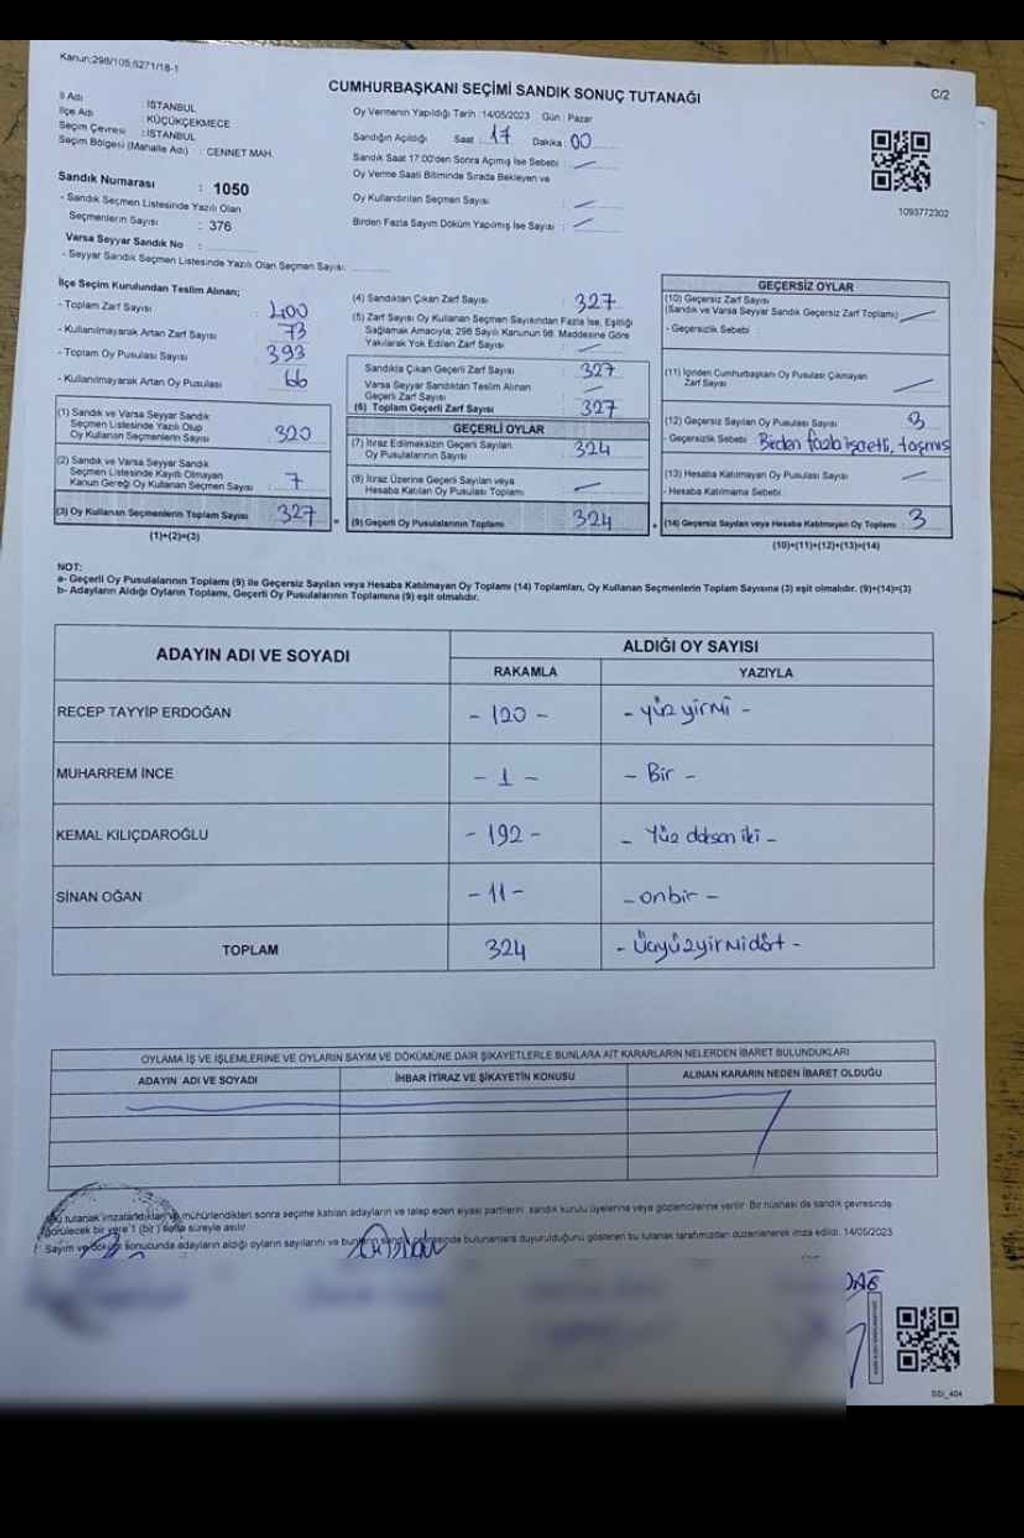 Kanun:298/105;6271/18-1
C/2
CUMHURBAŞKANI SEÇİMİ SANDIK SONUÇ TUTANAĞI
İl Adı : İSTANBUL
İlçe Adı : KÜÇÜKÇEKMECE
Seçim Çevresi : İSTANBUL
Seçim Bölgesi (Mahalle Adı) : CENNET MAH.
Sandık Numarası : 1050
- Sandık Seçmen Listesinde Yazılı Olan
Seçmenlerin Sayısı : 376
Varsa Seyyar Sandık No :
- Seyyar Sandık Seçmen Listesinde Yazılı Olan Seçmen Sayısı:
Oy Vermenin Yapıldığı Tarih :14/05/2023 Gün : Pazar
Sandığın Açıldığı Saat : 17 Dakika : 00
Sandık Saat 17:00'den Sonra Açılmış İse Sebebi : —
Oy Verme Saati Bitiminde Sırada Bekleyen ve
Oy Kullandırılan Seçmen Sayısı : —
Birden Fazla Sayım Döküm Yapılmış İse Sayısı : —
1093772302
İlçe Seçim Kurulundan Teslim Alınan;
- Toplam Zarf Sayısı : 400
- Kullanılmayarak Artan Zarf Sayısı : 73
- Toplam Oy Pusulası Sayısı : 393
- Kullanılmayarak Artan Oy Pusulası : 66
(1) Sandık ve Varsa Seyyar Sandık
Seçmen Listesinde Yazılı Olup
Oy Kullanan Seçmenlerin Sayısı : 320
(2) Sandık ve Varsa Seyyar Sandık
Seçmen Listesinde Kayıtlı Olmayan
Kanun Gereği Oy Kullanan Seçmen Sayısı : 7
(3) Oy Kullanan Seçmenlerin Toplam Sayısı : 327
(1)+(2)=(3)
(4) Sandıktan Çıkan Zarf Sayısı : 327
(5) Zarf Sayısı Oy Kullanan Seçmen Sayısından Fazla İse, Eşitliği
Sağlamak Amacıyla; 298 Sayılı Kanunun 98. Maddesine Göre
Yakılarak Yok Edilen Zarf Sayısı : —
Sandıkta Çıkan Geçerli Zarf Sayısı : 327
Varsa Seyyar Sandıktan Teslim Alınan
Geçerli Zarf Sayısı : —
(6) Toplam Geçerli Zarf Sayısı : 327
GEÇERLİ OYLAR
(7) İtiraz Edilmeksizin Geçerli Sayılan
Oy Pusulalarının Sayısı : 324
(8) İtiraz Üzerine Geçerli Sayılan veya
Hesaba Katılan Oy Pusulası Toplamı : —
= (9) Geçerli Oy Pusulalarının Toplamı : 324
GEÇERSİZ OYLAR
(10) Geçersiz Zarf Sayısı
(Sandık ve Varsa Seyyar Sandık Geçersiz Zarf Toplamı) : —
- Geçersizlik Sebebi :
(11) İçinden Cumhurbaşkanı Oy Pusulası Çıkmayan
Zarf Sayısı : —
(12) Geçersiz Sayılan Oy Pusulası Sayısı : 3
- Geçersizlik Sebebi : Birden fazla işaretli, taşmış
(13) Hesaba Katılmayan Oy Pusulası Sayısı : —
- Hesaba Katılmama Sebebi :
+ (14) Geçersiz Sayılan veya Hesaba Katılmayan Oy Toplamı : 3
(10)+(11)+(12)+(13)=(14)
NOT:
a- Geçerli Oy Pusulalarının Toplamı (9) ile Geçersiz Sayılan veya Hesaba Katılmayan Oy Toplamı (14) Toplamları, Oy Kullanan Seçmenlerin Toplam Sayısına (3) eşit olmalıdır. (9)+(14)=(3)
b- Adayların Aldığı Oyların Toplamı, Geçerli Oy Pusulalarının Toplamına (9) eşit olmalıdır.
ADAYIN ADI VE SOYADI
ALDIĞI OY SAYISI
RAKAMLA YAZIYLA
RECEP TAYYİP ERDOĞAN - 120 - - yüz yirmi -
MUHARREM İNCE - 1 - - Bir -
KEMAL KILIÇDAROĞLU - 192 - - Yüz doksan iki -
SİNAN OĞAN - 11 - - onbir -
TOPLAM 324 - Üçyüzyirmidört -
OYLAMA İŞ VE İŞLEMLERİNE VE OYLARIN SAYIM VE DÖKÜMÜNE DAİR ŞİKAYETLERLE BUNLARA AİT KARARLARIN NELERDEN İBARET BULUNDUKLARI
ADAYIN ADI VE SOYADI İHBAR İTİRAZ VE ŞİKAYETİN KONUSU ALINAN KARARIN NEDEN İBARET OLDUĞU
Bu tutanak imzalandıktan ve mühürlendikten sonra seçime katılan adayların ve talep eden siyasi partilerin, sandık kurulu üyelerine veya gözlemcilerine verilir. Bir nüshası da sandık çevresinde
görülecek bir yere 1 (bir) hafta süreyle asılır.
Sayım ve döküm sonucunda adayların aldığı oyların sayılarını ve bunların sandık çevresinde bulunanlara duyurulduğunu gösteren bu tutanak tarafımızdan düzenlenerek imza edildi. 14/05/2023